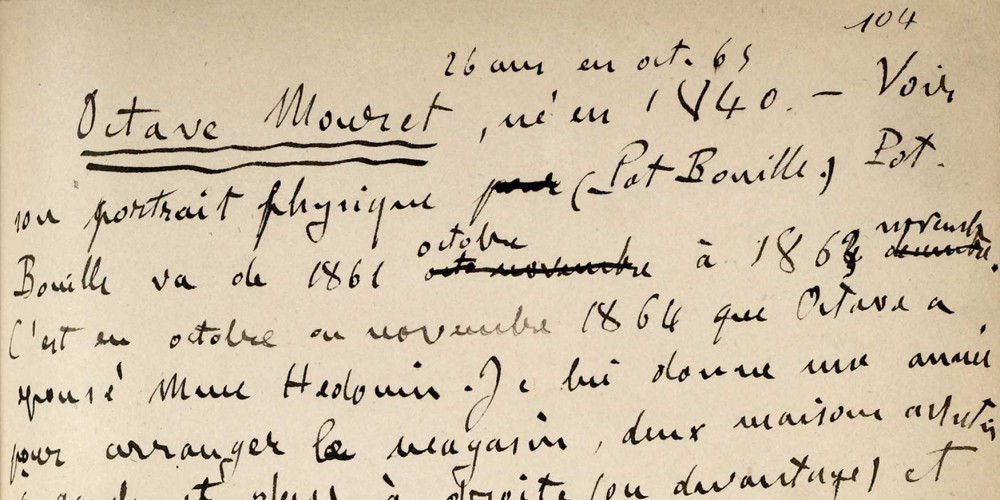 104
26 ans en oct. 65
Octave Mouret, né en 1840. — Voir
son portrait physique pour (Pot Bouille.) Pot.
octobre novembre
Bouille va de 1861 octo novembre à 186 décembre.
C'est en octobre ou novembre 1864 que Octave a
épousé Mme Hedouin. Je lui donne une année
pour arranger le magasin, deux maisons
et plus à droite (ou davantage) et